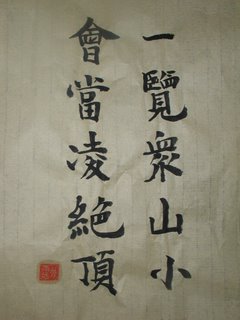 一覽衆山小
會當凌絕頂